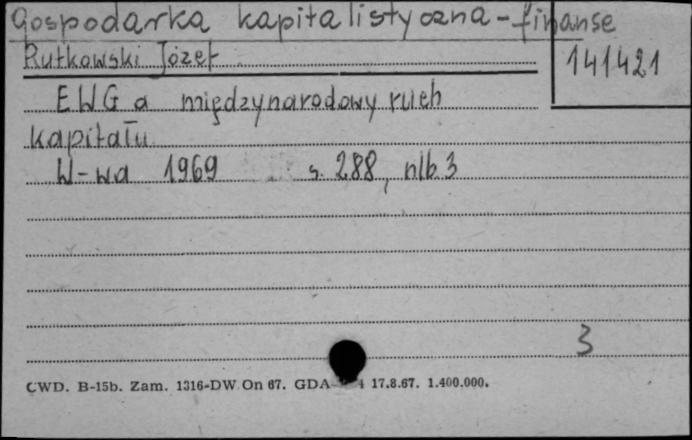 Gospodarka kapitalistyczna - finanse
Rutkowski Józef
141421
EWG a międzynarodowy ruch
kapitału
W-wa 1969 s. 288, nlb. 3
3
CWD. B-15b. Zam. 1316-DW On 67. GDA 4 17.8.67. 1.400.000.